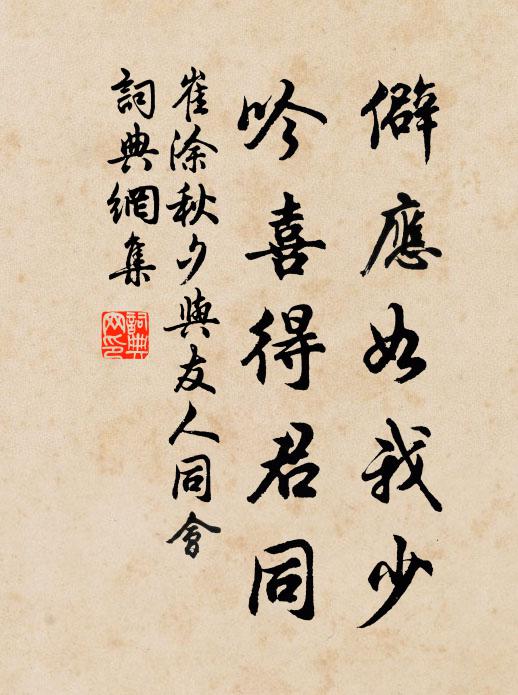 僻應如我少
吟喜得君同
崔涂秋夕與友人同會
詞典網集
詞典網印